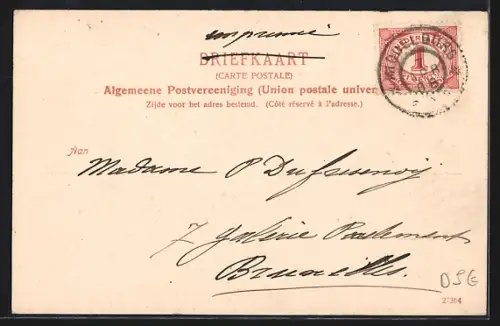 imprimé
BRIEFKAART
(CARTE POSTALE)
Algemeene Postvereeniging (Union postale univer
Zijde voor het adres bestemd. (Côté réservé à l'adresse.)
1
Aan
Madame P
7 Galerie Parlement
Bruxelles.
DSG
27364